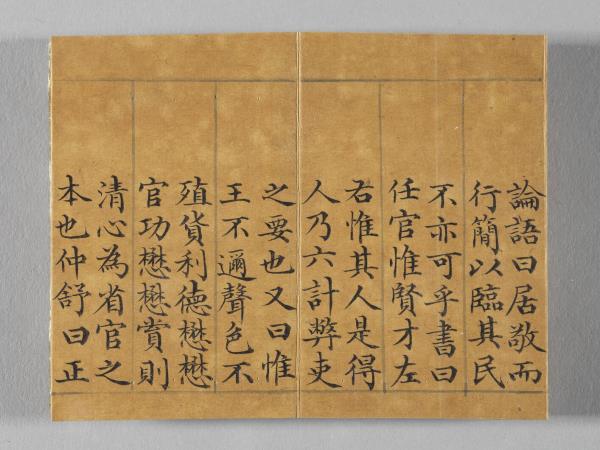 論語曰居敬而
行簡以臨其民
不亦可乎書曰
任官惟賢才左
右惟其人是得
人乃六計弊吏
之要也又曰惟
王不邇聲色不
殖貨利德懋懋
官功懋懋賞則
清心為省官之
本也仲舒曰正